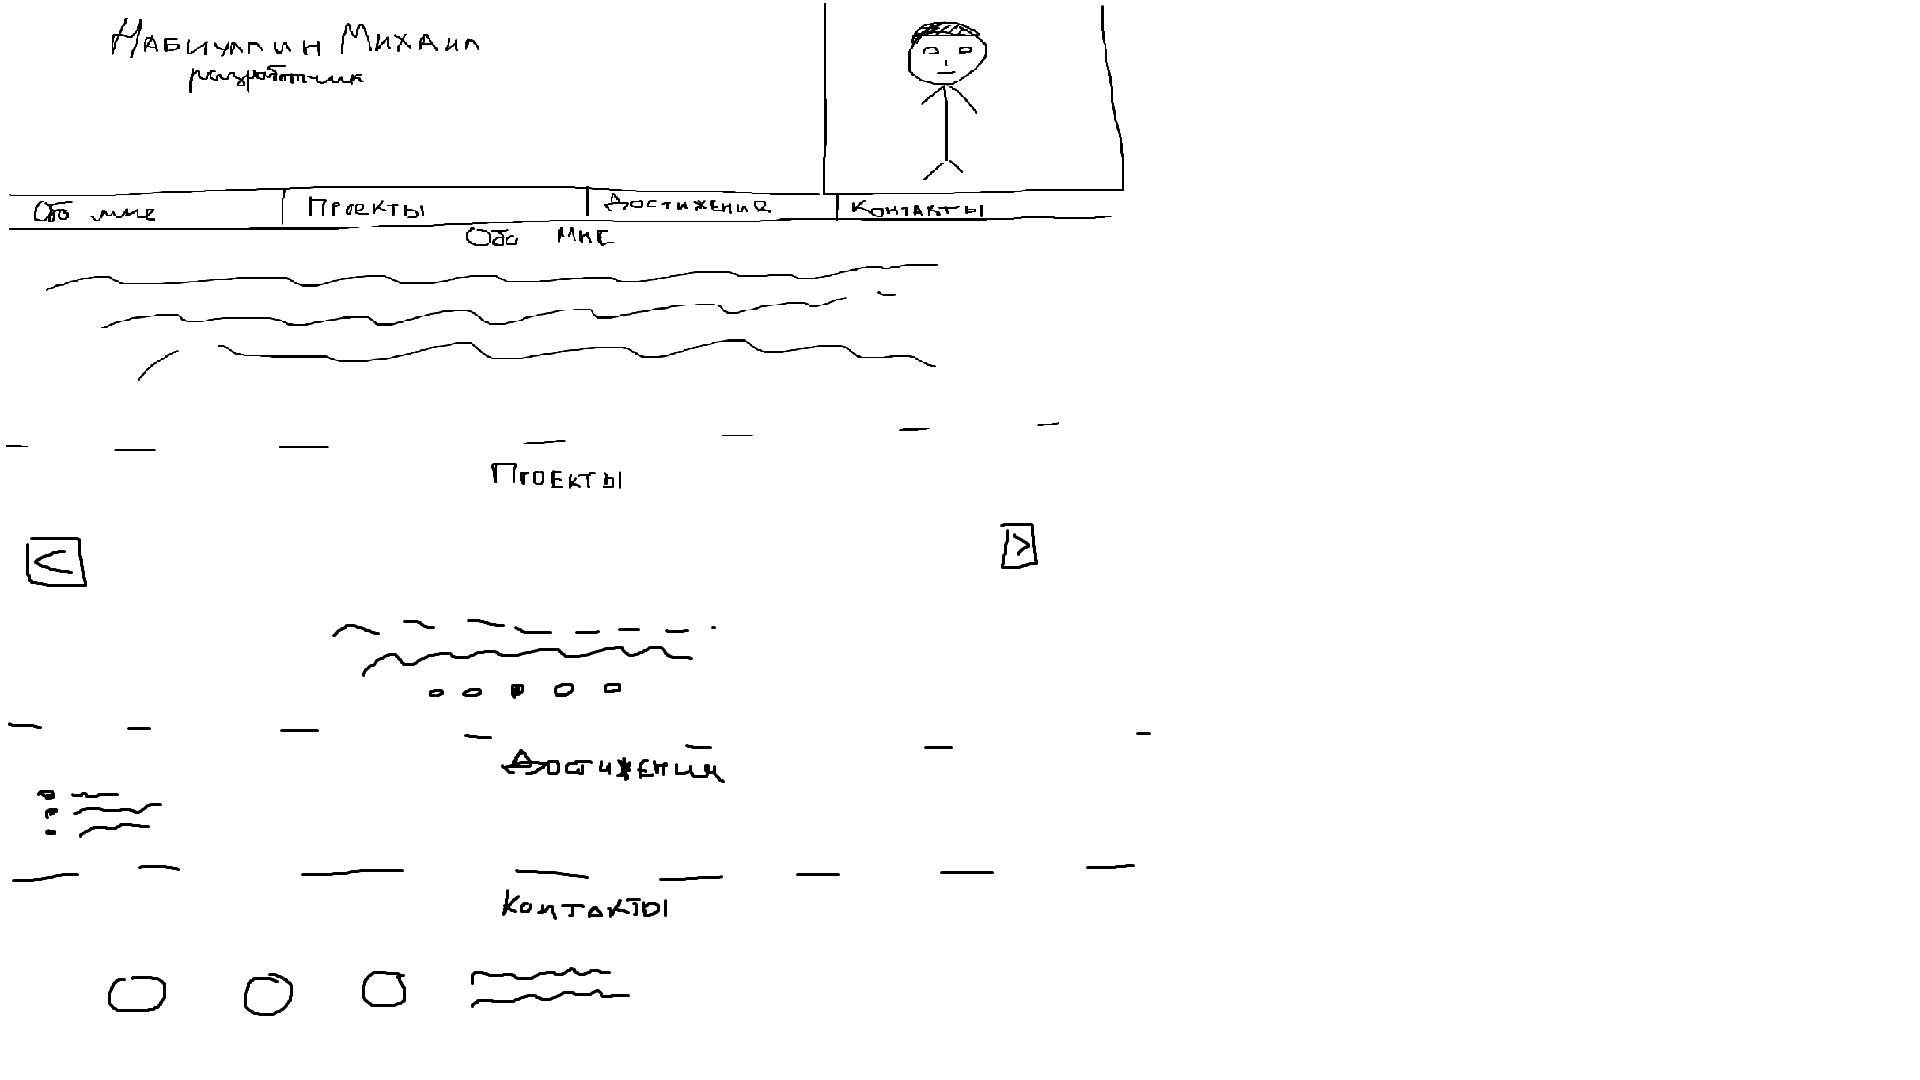 Набиуллин Михаил
разработчик
Обо мне Проекты Достижения Контакты
Обо мне
Проекты
< >
Достижения
Контакты